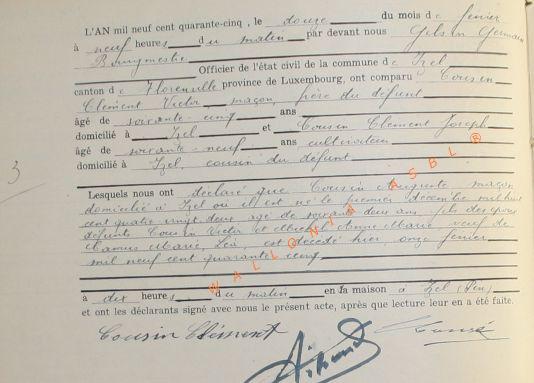 L'AN mil neuf cent quarante-cinq, le douze du mois de février
à neuf heures du matin par devant nous Gilson Germain
Bourgmestre Officier de l'état civil de la commune de Izel
canton de Florenville province de Luxembourg, ont comparu Cousin
Clément Victor maçon, frère du défunt
âgé de soixante-cinq ans
domicilié à Izel et Cousin Clément Joseph
âgé de soixante-neuf ans cultivateur
domicilié à Izel cousin du défunt.
3
Lesquels nous ont déclaré que Cousin Auguste maçon
domicilié à Izel où il est né le premier décembre mil huit
cent quatre vingt deux âgé de soixante deux ans fils des époux
défunts Cousin Victor et Anne Marie, veuf de
Marie, Léa, est décédé hier, onze février
mil neuf cent quarante cinq
WALLONIA ASBL ®
à dix heures du matin en sa maison à Izel
et ont les déclarants signé avec nous le présent acte, après que lecture leur en a été faite.
Cousin Clément